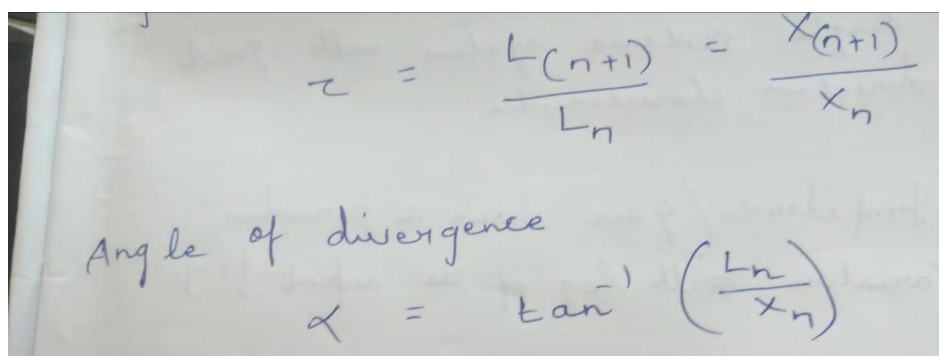 τ = L(n+1) / Ln = X(n+1) / Xn
Angle of divergence
α = tan⁻¹ (Ln / Xn)